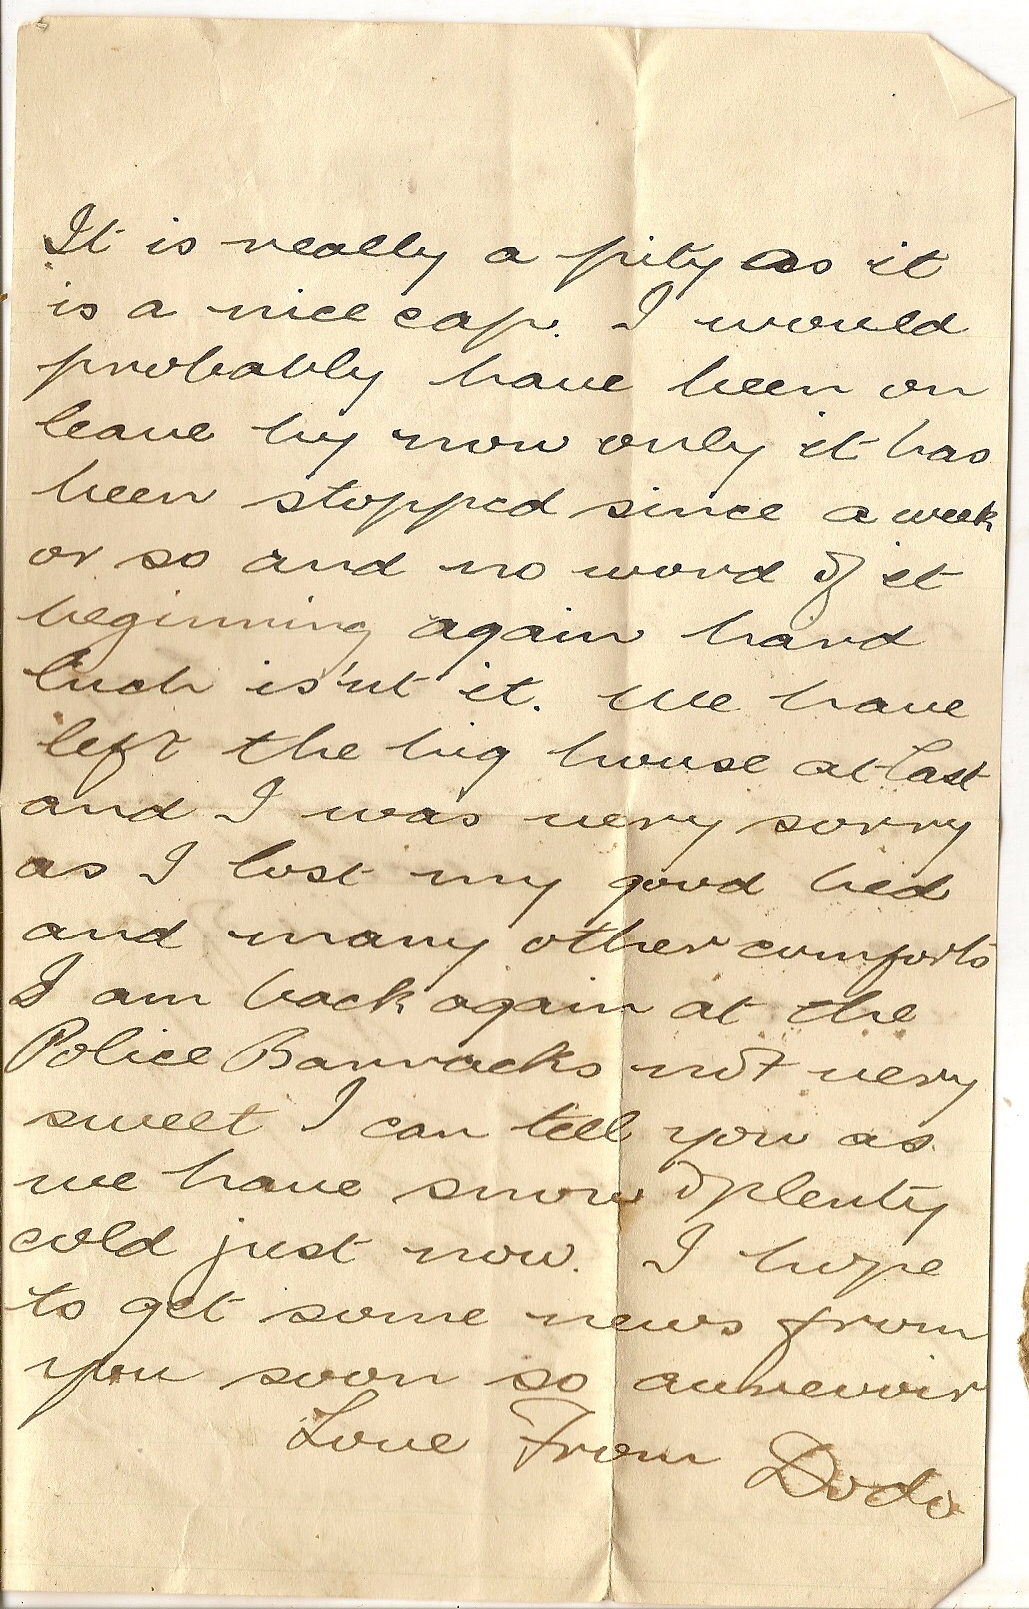 It is really a pity as it
is a nice cap. I would
probably have been on
leave by now only it has
been stopped since a week
or so and no word of it
beginning again hard
luck is'nt it. We have
left the big house at last
and I was very sorry
as I lost my good bed
and many other comforts
I am back again at the
Police Barracks not very
sweet I can tell you as
we have snow & plenty
cold just now. I hope
to get some news from
you soon so aurrevoir
Love From Dodo